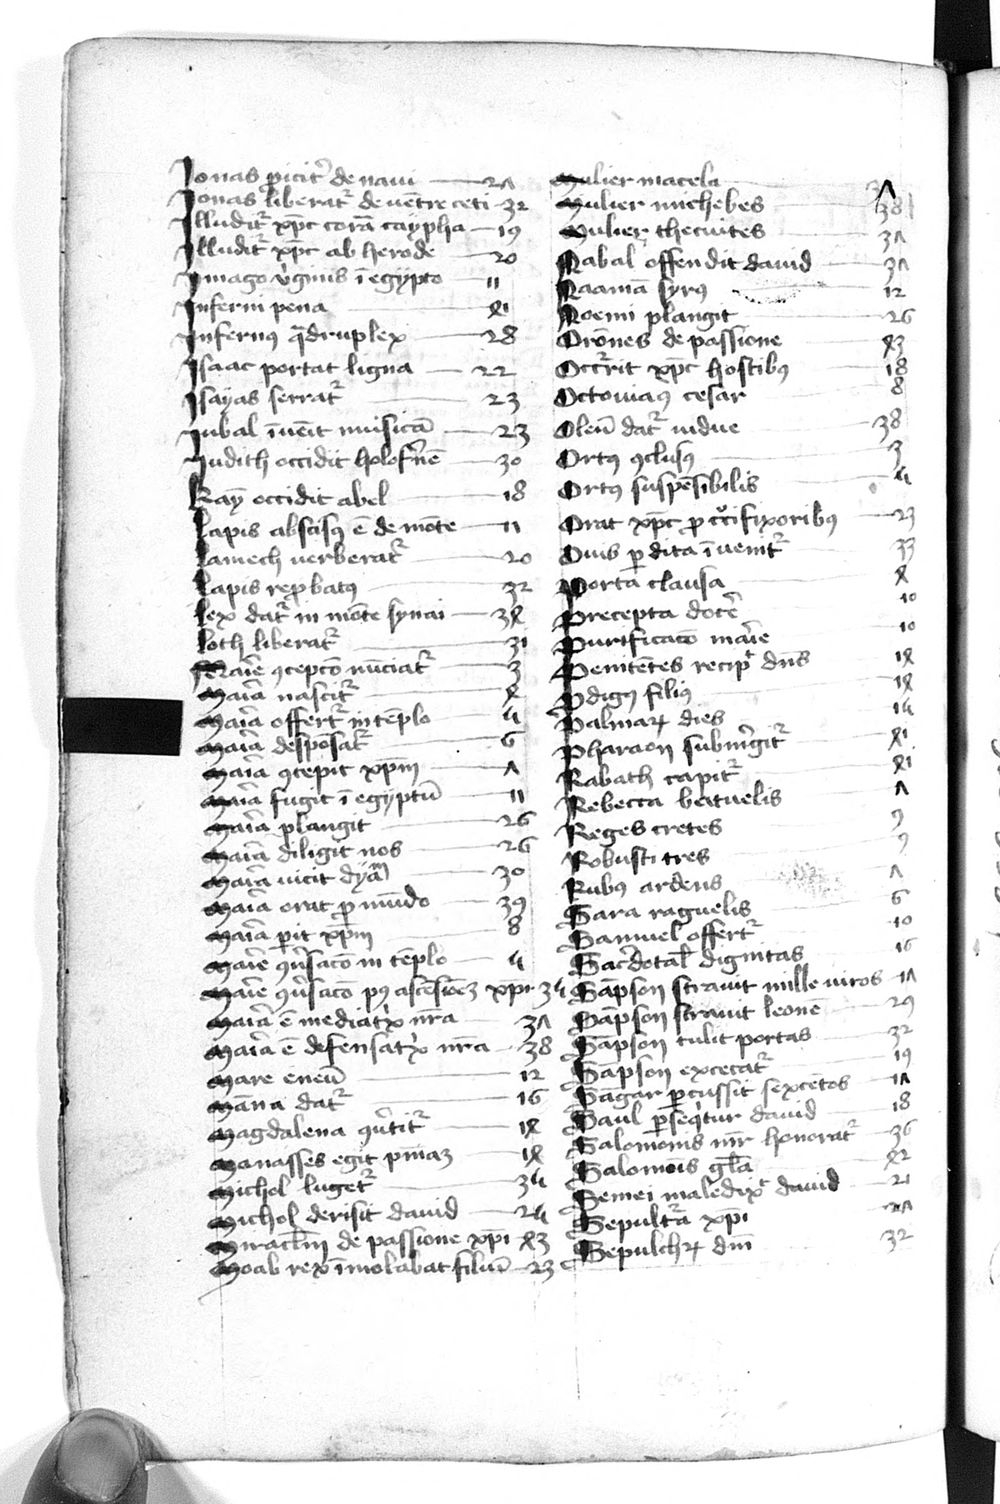 Jonas ꝓicitr de naui 27
Jonas liberatr de uentre ceti 32
Illuditr xp̄c corā caypha 19
Illuditr xp̄c ab herode 20
Jmago v̓ginis ī egypto 11
Inferni pena 41
Infernꝰ q̄druplex 28
Isaac portat ligna 22
Isayas serratr 23
Jubal īuēit musicā 23
Judith occidit holof̓nē 30
Kaym occidit abel 18
Lapis abscisꝰ ē de mōte 11
Lamech uerberatr 20
Lapis reꝓbatus 32
Lex datr in mōte synai 34
Loth liberatr 31
Marie ꝯcepcō nūciatr 3
Maria nascitr 4
Maria offertr in tēplo 5
Maria desponsatr 6
Maria ꝯcepit xp̄m 7
Maria fugit ī egyptū 11
Maria plangit 26
Maria diligit nos 26
Maria uicit dyabl̄m 30
Maria orat ꝓ mūdo 39
Maria pit xp̄m 8
Marie ꝯu̓sacō in tēplo 5
Marie ꝯu̓sacō pꝰ ascēsionē xpi 35
Maria ē mediatrix nr̄a 37
Maria ē defensatrix nr̄a 38
Mare eneū 12
Māna datr 16
Magdalena ꝯu̓titr 14
Manasses egit pn̄iaꝫ 14
Michol lugetr 35
Michol derisit dauid 25
Miracl̄m de passione xp̄i 43
Moab rex īmolabat filiū 23
Mulier macela 37
Mulier muchebes 38
Mulier thecuites 37
Nabal offendit dauid 37
Naamā syrꝰ 12
Noemi plangit 26
Orōnes de passione 43
Occ̄rit xp̄c hostibꝰ 18
Octouiaꝰ cesar 8
Oleū datr uidue 38
Ortꝰ ꝯclusꝰ 3
Ortꝰ suspēsibilis 5
Orat xp̄c ꝓ cͥcifixoribꝰ 23
Ouis ꝑdita īuenitr 33
Porta clausa 4
Precepta docēt 10
Purificacō marie 10
Penitētes recipt dn̄s 14
Pdigꝰ filiꝰ 14
Palmaꝝ dies 15
Pharaon submͥgitr 41
Rabath capitr 41
Rebecca batuelis 7
Reges tretes 9
Robusti tres 9
Rubꝰ ardens 7
Sara raguelis 6
Samuel offertr 10
Sacͥdotal̄ dignitas 16
Sāpson strauit mille uiros 17
Sāpson strauit leonē 29
Sāpson tulit portas 32
Sāpson excecatr 19
Sāgar ꝑcussit sexcētos 17
Saul ꝑseqͥtur dauid 18
Salomonis mr̄ honoratr 36
Salomōis gl̄ia 42
Semei maledixͭ dauid 21
Sepultͣ xp̄i 27
Sepulchꝝ dn̄i 32